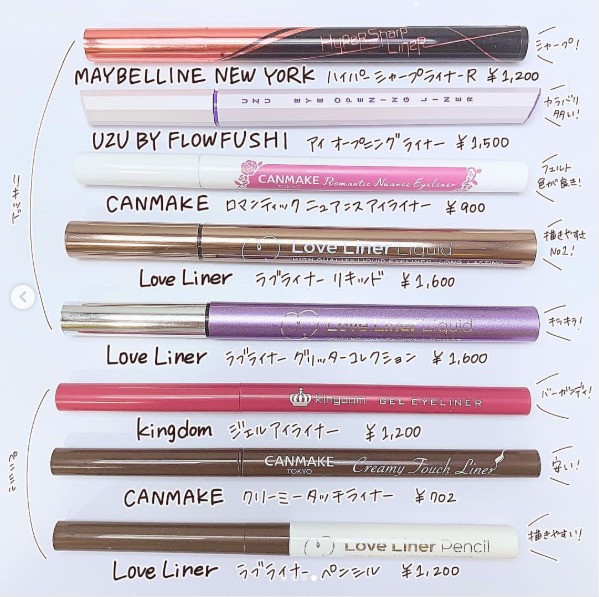 HyperSharp Liner
シャープ!
MAYBELLINE NEW YORK ハイパーシャープライナーR ¥1,200
UZU EYE OPENING LINER
カラバリ多い!
UZU BY FLOWFUSHI アイオープニングライナー ¥1,500
CANMAKE TOKYO Romantic Nuance Eyeliner
フェルト
色が良き!
CANMAKE ロマンティックニュアンスアイライナー ¥900
Love Liner Liquid
HIGH QUALITY LIQUID EYELINER LONG-LASTING
描きやすさ
No.1!
Love Liner ラブライナー リキッド ¥1,600
リキッド
Love Liner Liquid
キラキラ!
Love Liner ラブライナー グリッターコレクション ¥1,600
kingdom GEL EYELINER
バーガンディ!
kingdom ジェルアイライナー ¥1,200
CANMAKE TOKYO Creamy Touch Liner
安い!
CANMAKE クリーミータッチライナー ¥702
Love Liner Pencil
描きやすい!
Love Liner ラブライナー ペンシル ¥1,200